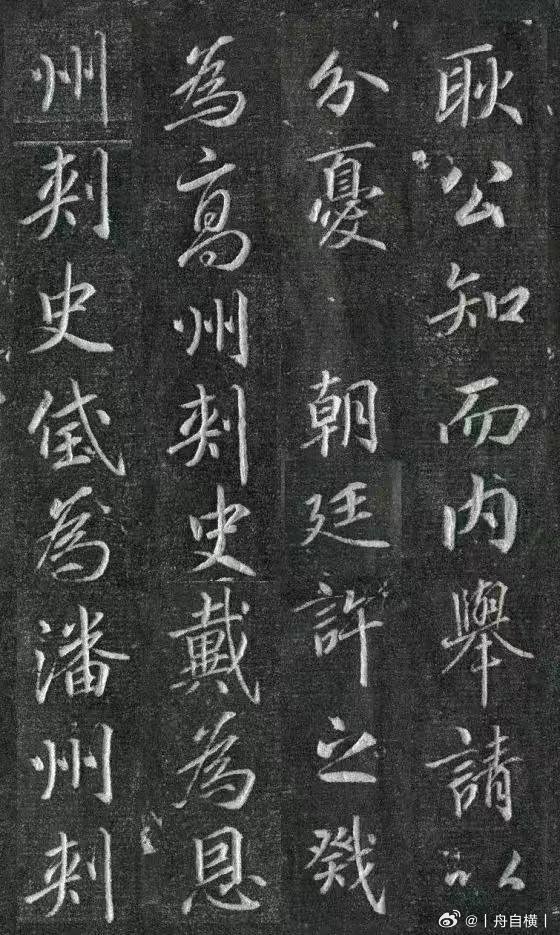 耿公知而内舉請以
分憂 朝廷許之戣
為高州刺史戴為恩
州刺史玳為潘州刺
@丨舟自横丨